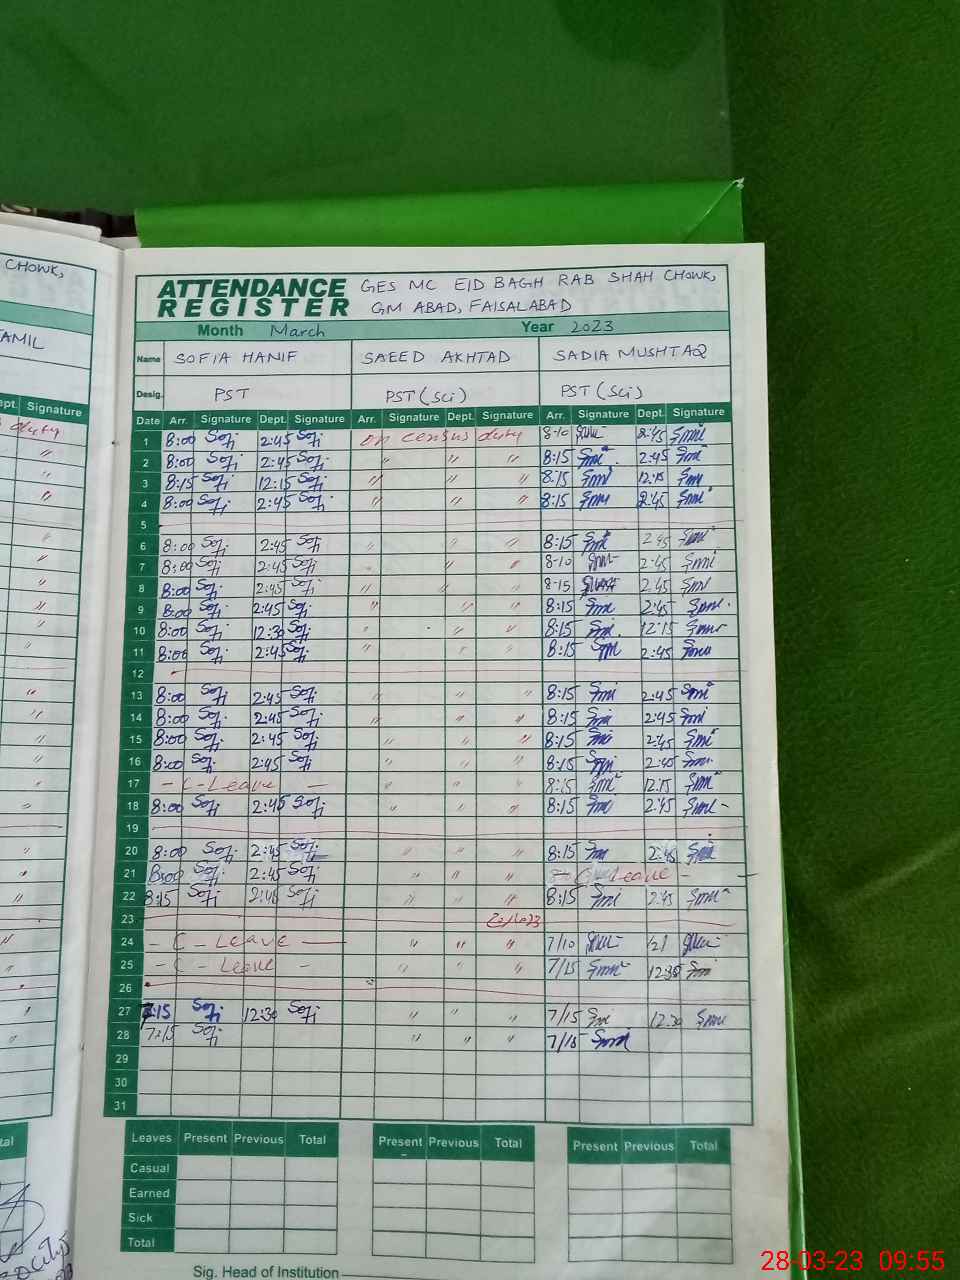 CHOWK,
AMIL
ept. Signature
duty
ATTENDANCE REGISTER GES MC EID BAGH RAB SHAH CHOWK,
GM ABAD, FAISALABAD
Month March Year 2023
Name SOFIA HANIF SAEED AKHTAD SADIA MUSHTAQ
Desig. PST PST (Sci) PST (Sci)
Date Arr. Signature Dept. Signature Arr. Signature Dept. Signature Arr. Signature Dept. Signature
1 8:00 Sofi 2:45 Sofi on census duty 8-10 2:45
2 8:00 Sofi 2:45 Sofi " " " 8:15 2:45
3 8:15 Sofi 12:15 Sofi " " " 8:15 12:15
4 8:00 Sofi 2:45 Sofi " " " 8:15 2:45
5
6 8:00 Sofi 2:45 Sofi " " " 8:15 2:45
7 8:00 Sofi 2:45 Sofi " " " 8-10 2:45
8 8:00 Sofi 2:45 Sofi " " " 8-15 2:45
9 8:00 Sofi 2:45 Sofi " " " 8:15 2:45
10 8:00 Sofi 12:30 Sofi " " " 8:15 12:15
11 8:00 Sofi 2:45 Sofi " " " 8:15 2:45
12
13 8:00 Sofi 2:45 Sofi " " " 8:15 2:45
14 8:00 Sofi 2:45 Sofi " " " 8:15 2:45
15 8:00 Sofi 2:45 Sofi " " " 8:15 2:45
16 8:00 Sofi 2:45 Sofi " " " 8:15 2:45
17 - C - Leave - " " " 8:15 12:15
18 8:00 Sofi 2:45 Sofi " " " 8:15 2:45
19
20 8:00 Sofi 2:45 Sofi " " " 8:15 2:45
21 8:00 Sofi 2:45 Sofi " " " C Leave -
22 8:15 Sofi 2:45 Sofi " " " 8:15 2:45
23
24 - C - Leave - " " " 7/10
25 - C - Leave - " " " 7/15 12:30
26
27 7:15 Sofi 12:30 Sofi " " " 7/15 12:30
28 7:15 Sofi " " " 7/15
29
30
31
Leaves Present Previous Total Present Previous Total Present Previous Total
Casual
Earned
Sick
Total
Sig. Head of Institution
28-03-23 09:55